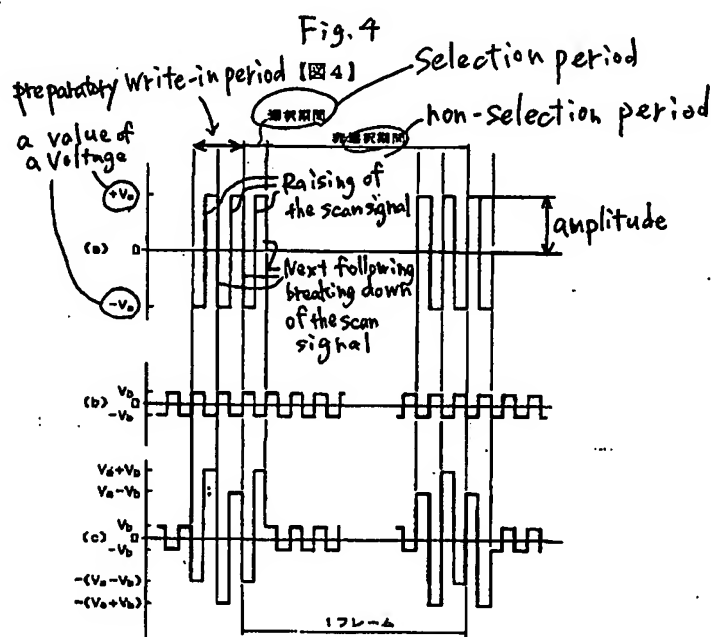 Fig. 4
preparatory write-in period
【図4】
Selection period
選択期間
non-selection period
非選択期間
a value of
a voltage
+Va
Raising of
the scan signal
amplitude
(a) 0
Next following
breaking down
of the scan
signal
-Va
(b) 0
Vb
-Vb
Va+Vb
Va-Vb
Vb
(c) 0
-Vb
-(Va-Vb)
-(Va+Vb)
1フレーム